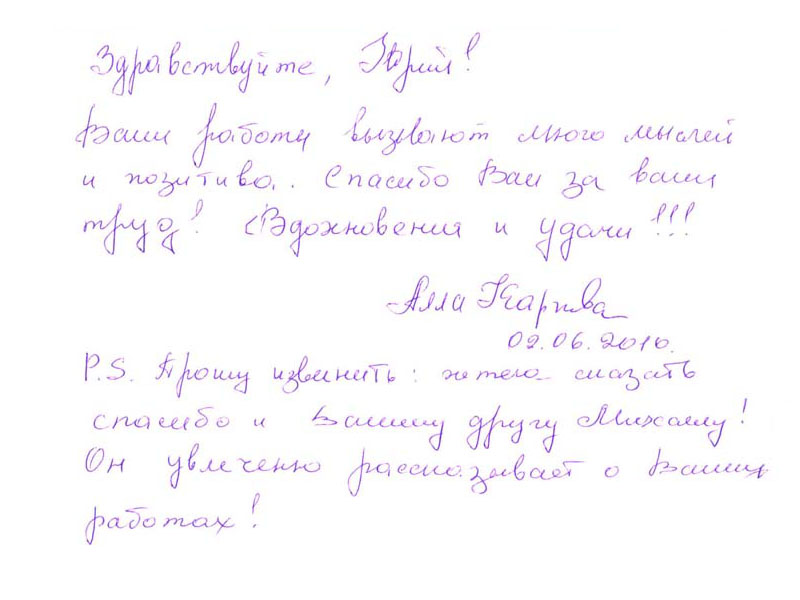 Здравствуйте, Юрий!
Ваши работы вызывают много мыслей
и позитива. Спасибо Вам за ваш
труд! Вдохновения и удачи!!!
Алла Карпова
02.06.2010.
P.S. Прошу извинить: хотела сказать
спасибо и Вашему другу Михаилу!
Он увлеченно рассказывает о Ваших
работах!